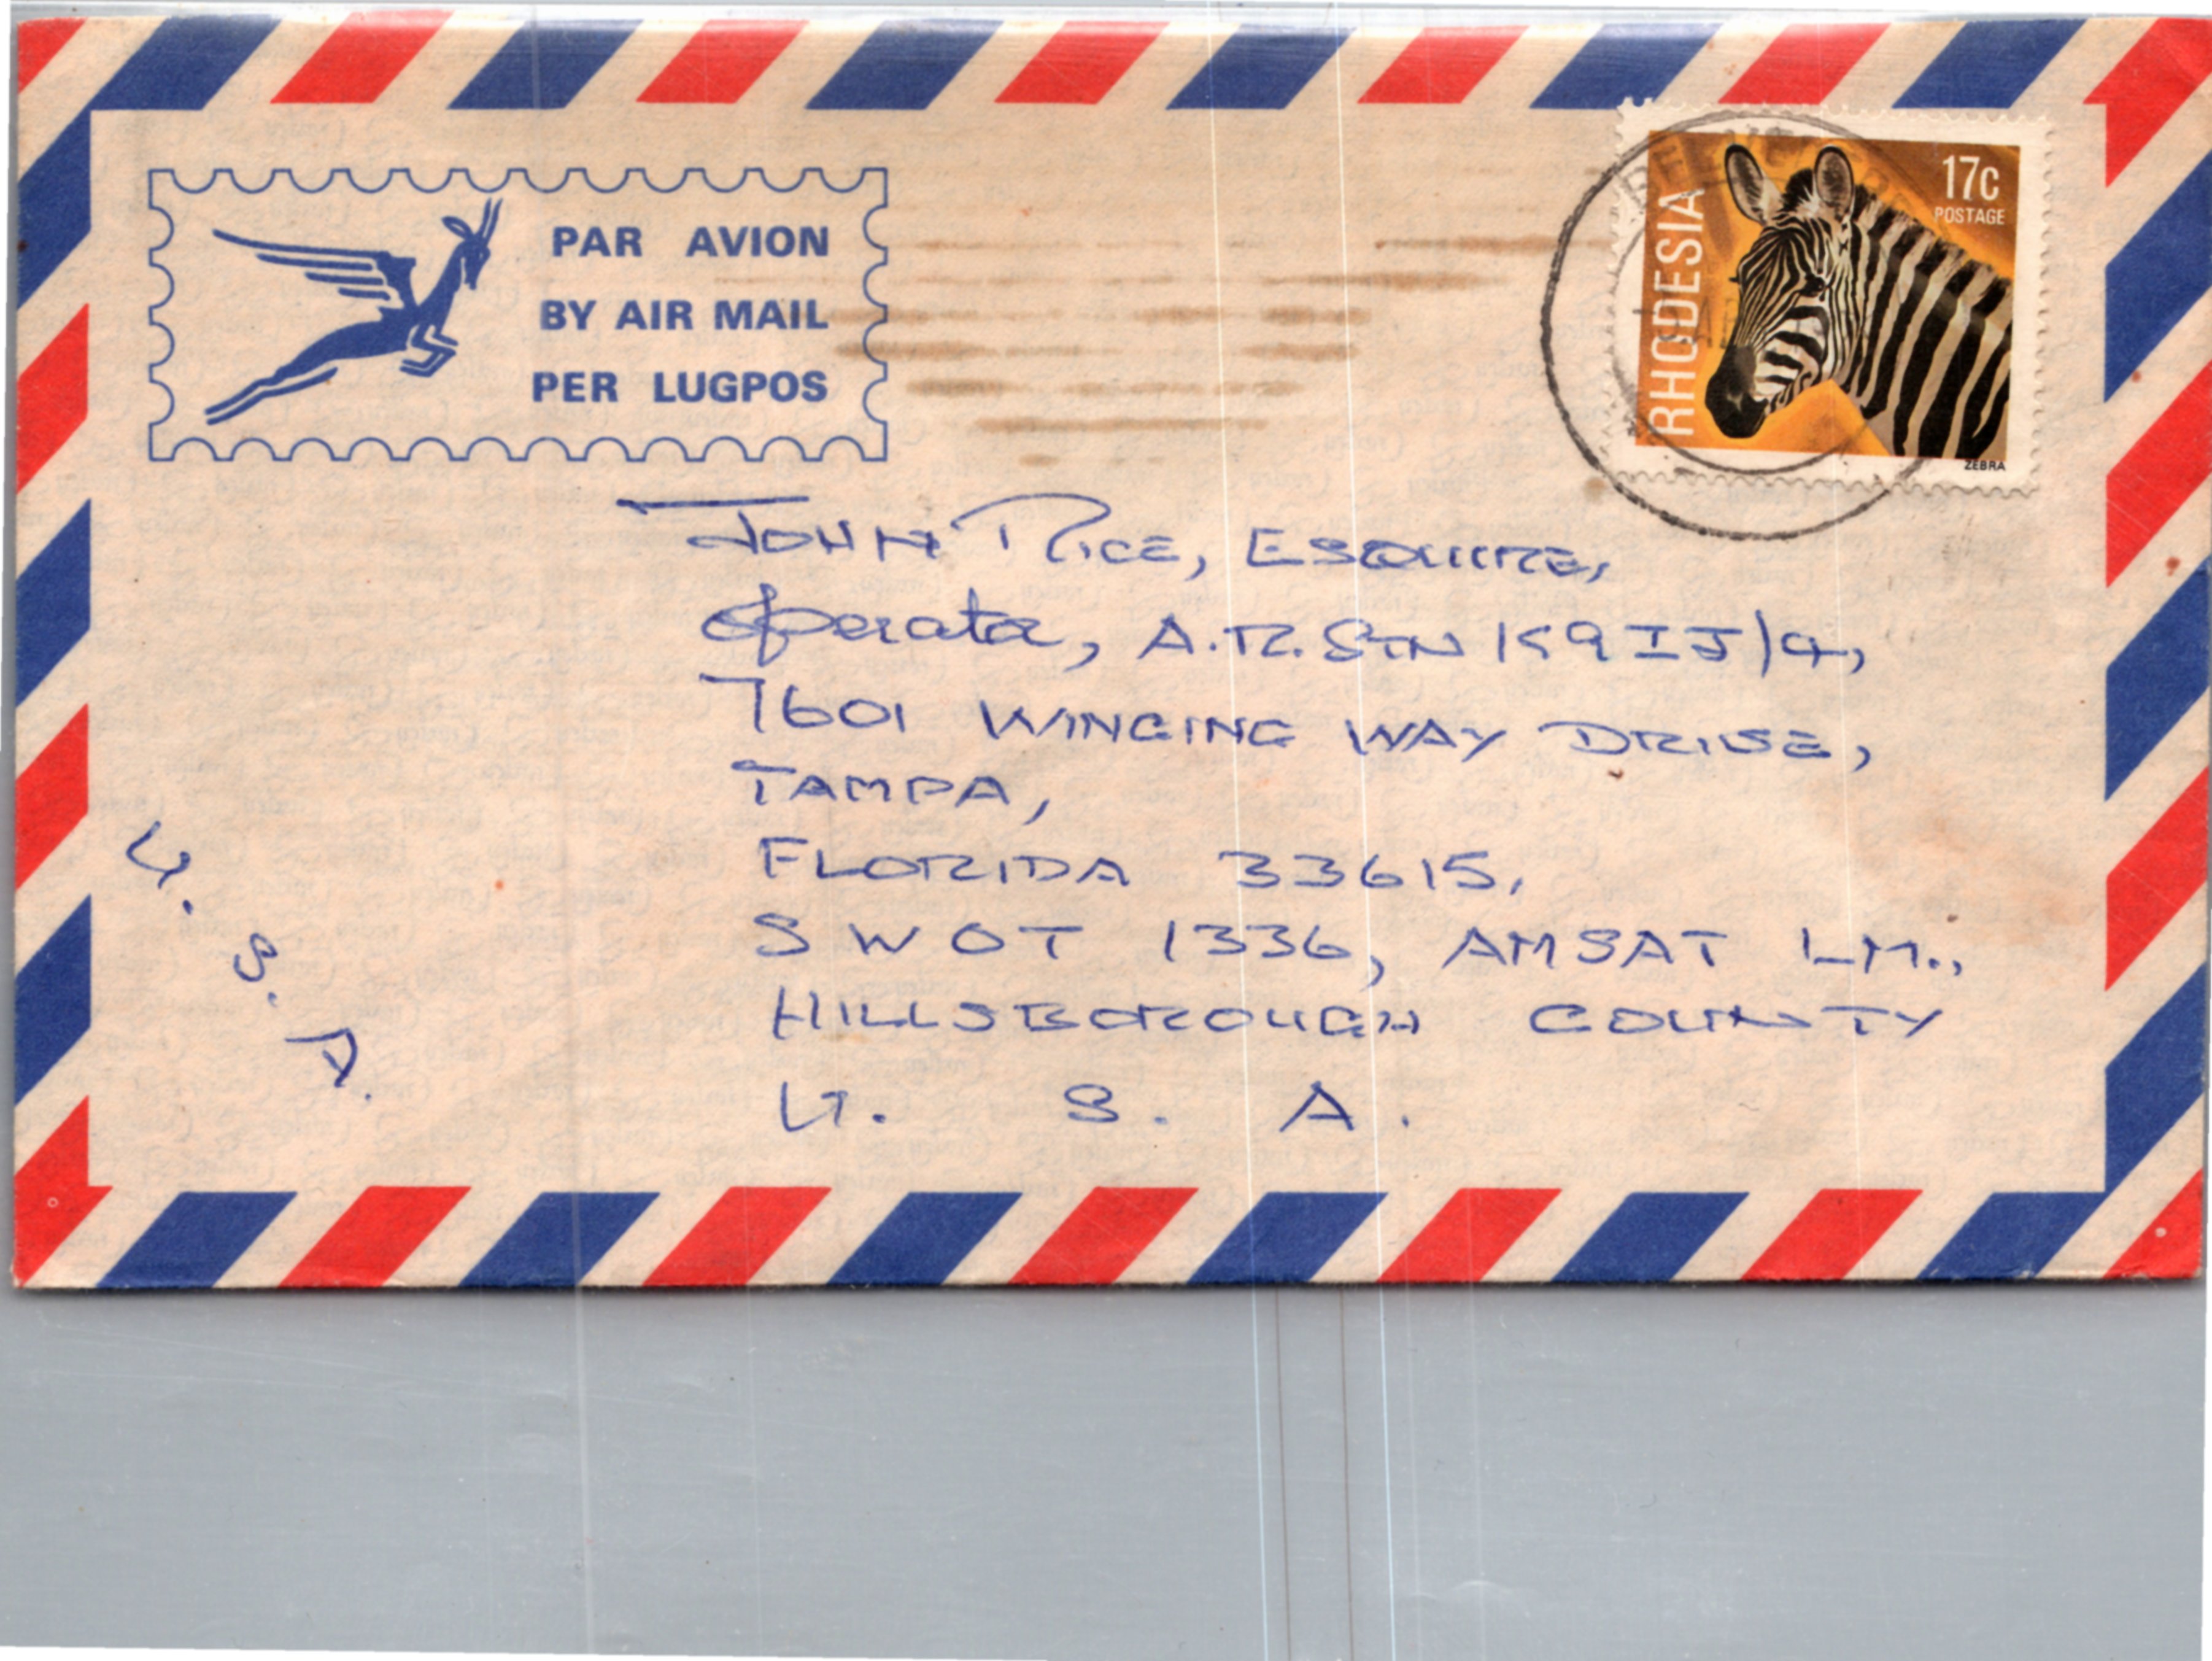 PAR AVION
BY AIR MAIL
PER LUGPOS
RHODESIA
17c
POSTAGE
ZEBRA
JOHN RICE, ESQUIRE,
Operator, A.R. STN K9IJ/4,
7601 WINGING WAY DRIVE,
TAMPA,
FLORIDA 33615,
SWOT 1336, AMSAT LM.,
HILLSBOROUGH COUNTY
U. S. A.
U. S. D.